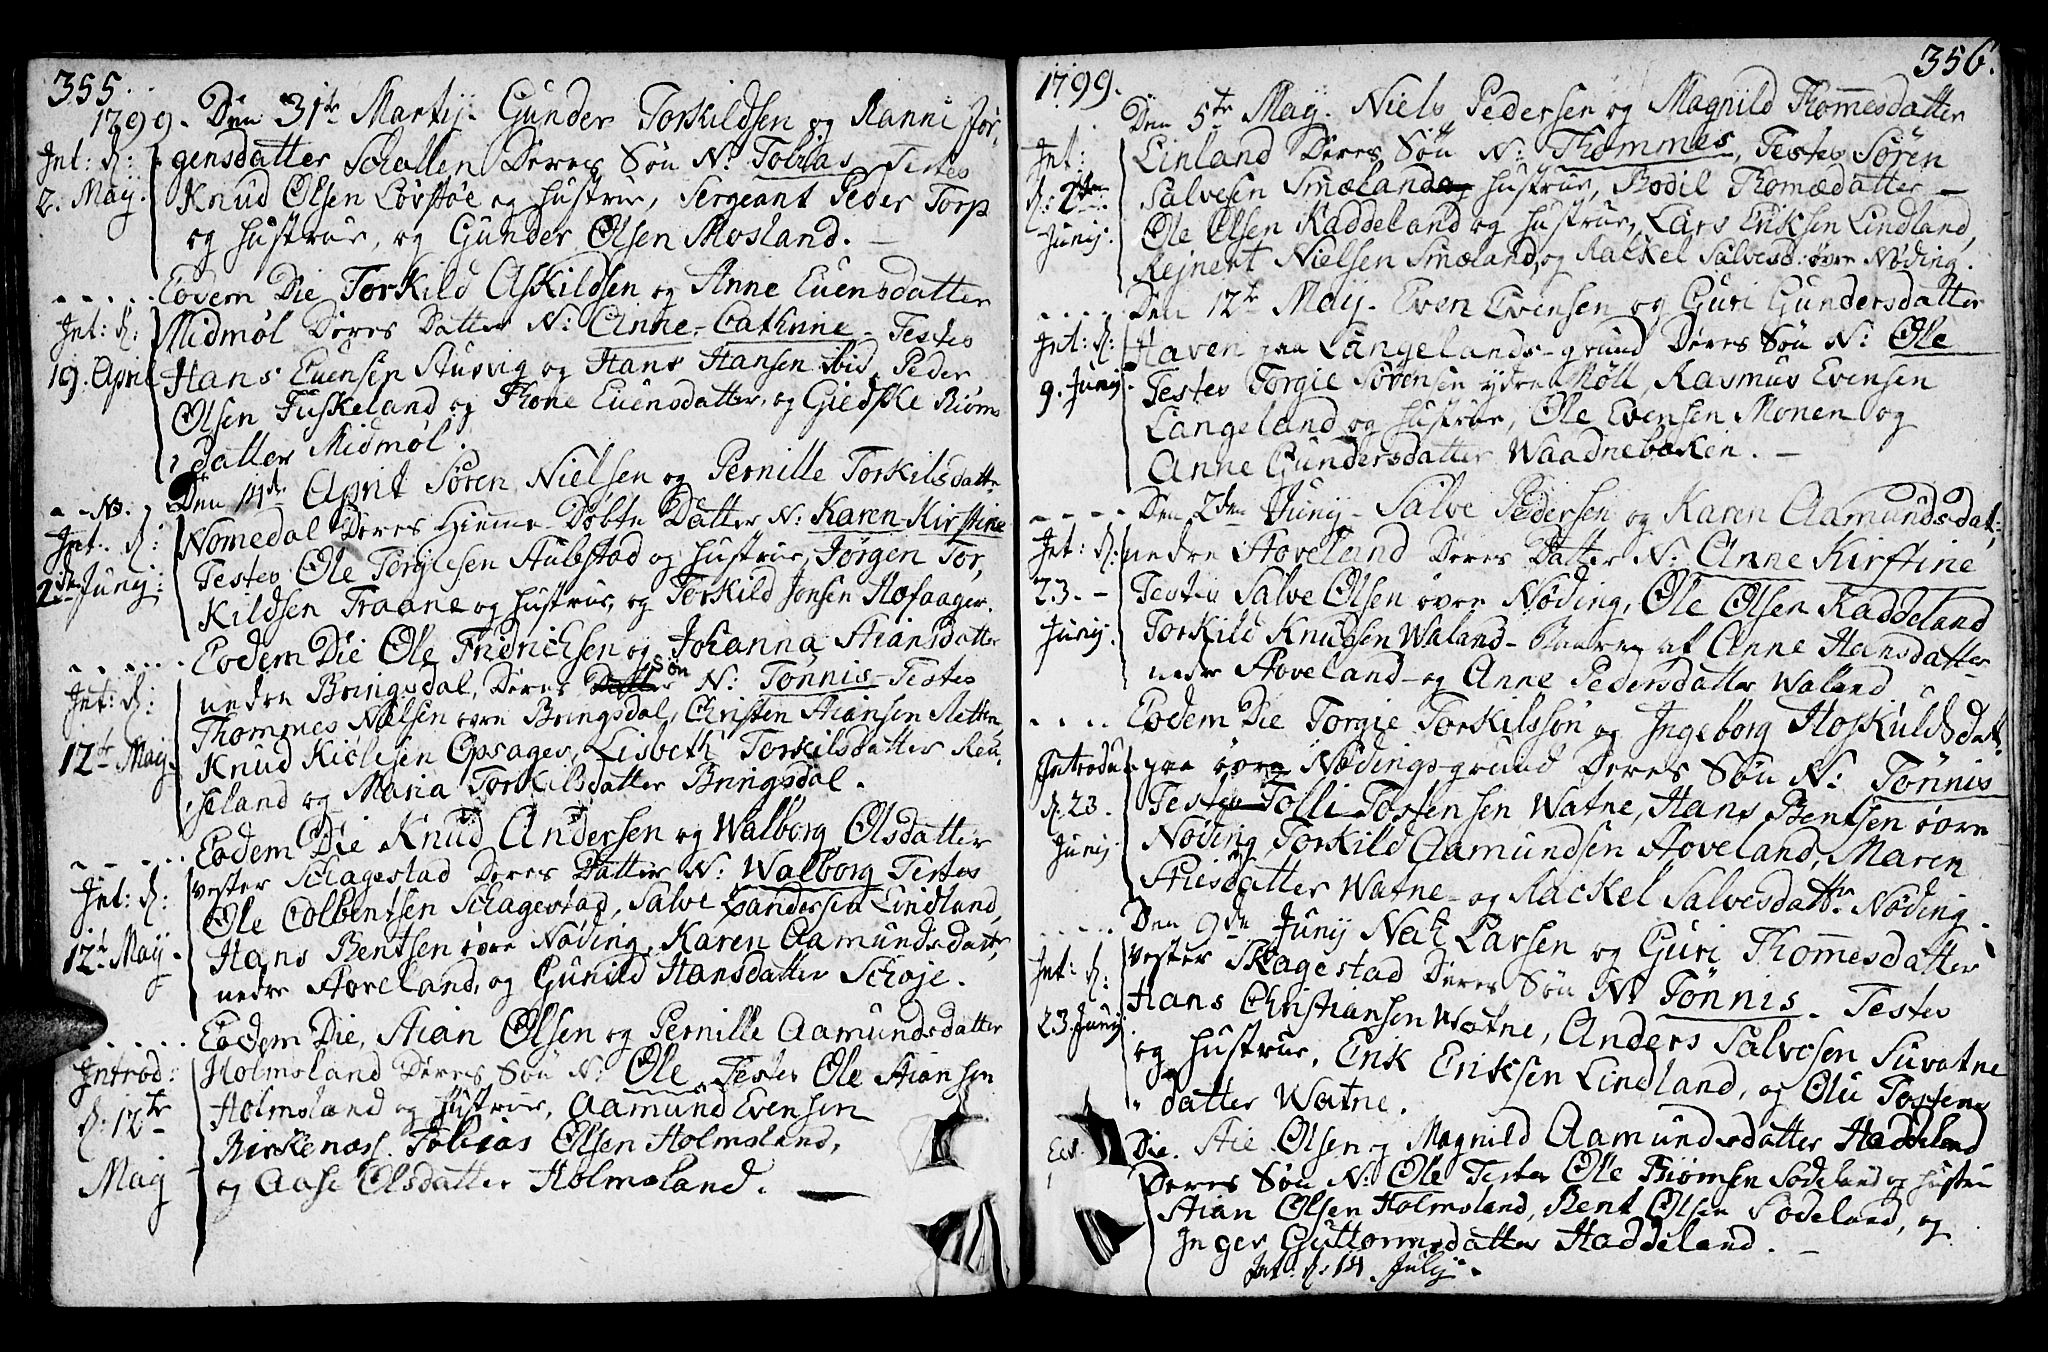 355.
1799. Den 31te Martij. Gunder Torkildsen og Ranni Jør,
Int: d: gensdatter Schallen Deres Søn N: Tobias Testes
2. Maij. Knud Olsen Løvstøe og Hustrue, Sergeant Peder Torp
og Hustrue, og Gunder Olsen Mosland.
Eodem Die Torkild Askildsen og Anne Euensdatter
Int: d: Midmøl Deres Datter N: Anne-Cathrine - Testes
19. April Hans Euensen Stusvig og Hans Hansen ibid, Peder
Olsen Fuskeland og Thone Euensdatter, og Giedske Biørns
datter Midmøl.
No. Den 14de April Søren Nielsen og Pernille Torkilsdatt.
Int: d: Nomedal Deres Hieme-Døbte Datter N: Karen-Kirstine
2den Junij: Testes Ole Torgiesen Stubstad og Hustrue, Jørgen Tor,
kildsen Traane og Hustrue, og Torkild Jonsen Hofaager.
Eodem Die Ole Fridrichsen og Johanna Stiansdatter
Int: d: nedre Bringsdal, Deres Datter Søn N: Tønnis - Testes
Thommes Nielsen øvre Bringsdal, Christen Stiansen Sletten,
12te Maij. Knud Kiølesen Opsager, Lisbeth Torkilsdatter Reu,
seland og Maria Torkilsdatter Bringsdal.
Eodem Die Knud Andersen og Walborg Olsdatter
Int: d: vester Schagestad Deres Datter N: Walborg Testes
Ole Colbentsen Schagestad, Salve Sandersen Lindland,
12te May. Hans Bentsen øvre Nøding, Karen Aamundsdatter,
nedre Stoveland, og Gunild Hansdatter Schøje.
Eodem Die, Stian Olsen og Pernille Aamundsdatter
Introd: Holmsland Deres Søn N: Ole, Testes Ole Stiansen
d: 12te Holmsland og Hustrue, Aamund Evensen
Birkenæss. Tobias Olsen Holmsland,
Maij og Aase Olsdatter Holmsland.
1799. 356.
Den 5te Maij. Niels Pedersen og Magnild Thommesdatter
Int: Linland Deres Søn N: Thommes, Testes Søren
d: 2den Salvesen Smæland og Hustrue, Bodil Thomædatter
Junij. Ole Olsen Kaddeland og Hustrue, Lars Eriksen Lindland,
Rejnert Nielsen Smæland, og Rackel Salvesd: øvre Nøding.
Den 12te Maij. Even Evensen og Guri Gundersdatter
Int: d: Haven paa Langelands-grund Deres Søn N: Ole
9. Junij. Testes Torgie Sørensen ydre Møll, Rasmus Evensen
Langeland og Hustrue, Ole Evensen Monen og
Anne Gundersdatter Waadnebaken.
Den 2den Junij - Salve Pedersen og Karen Aamundsdat:
Int: d: nedre Stoveland Deres Datter N: Anne Kirstine
23. Testes Salve Olsen øvre Nøding, Ole Olsen Kaddeland
Junij. Torkild Knudsen Waland - Baaren af Anne Hansdatter
nedre Stoveland - og Anne Pedersdatter Waland
Eodem Die Torgie Torkilssøn og Ingeborg Hoskuldsdat.
Introdu: paa øvre Nødings-grund Deres Søn N: Tønnis
d: 23. Testes Tolli Tostensen Watne, Hans Bentsen øvre
Junij Nøding, Torkild Aamundsen Stoveland, Maren
Stiesdatter Watne - og Rackel Salvesdattr. Nøding.
Den 9de Junij Natz Larsen og Guri Thommesdatter
Int: d: vester Skagestad Deres Søn N: Tønnis. Testes
23. Junij Hans Christiansen Watne, Anders Salvesen Suvatne
og Hustrue, Erik Eriksen Lindland, og Olu Tostens
datter Watne.
Eod. Die. Stie Olsen og Magnild Aamundsdatter Haddeland
Deres Søn N: Ole Testes Ole Biørnsen Sodeland og Hustru
Stian Olsen Holmsland, Bent Olsen Sodeland, og
Inger Guttormsdatter Haddeland.
Int: d: 14. Julij.